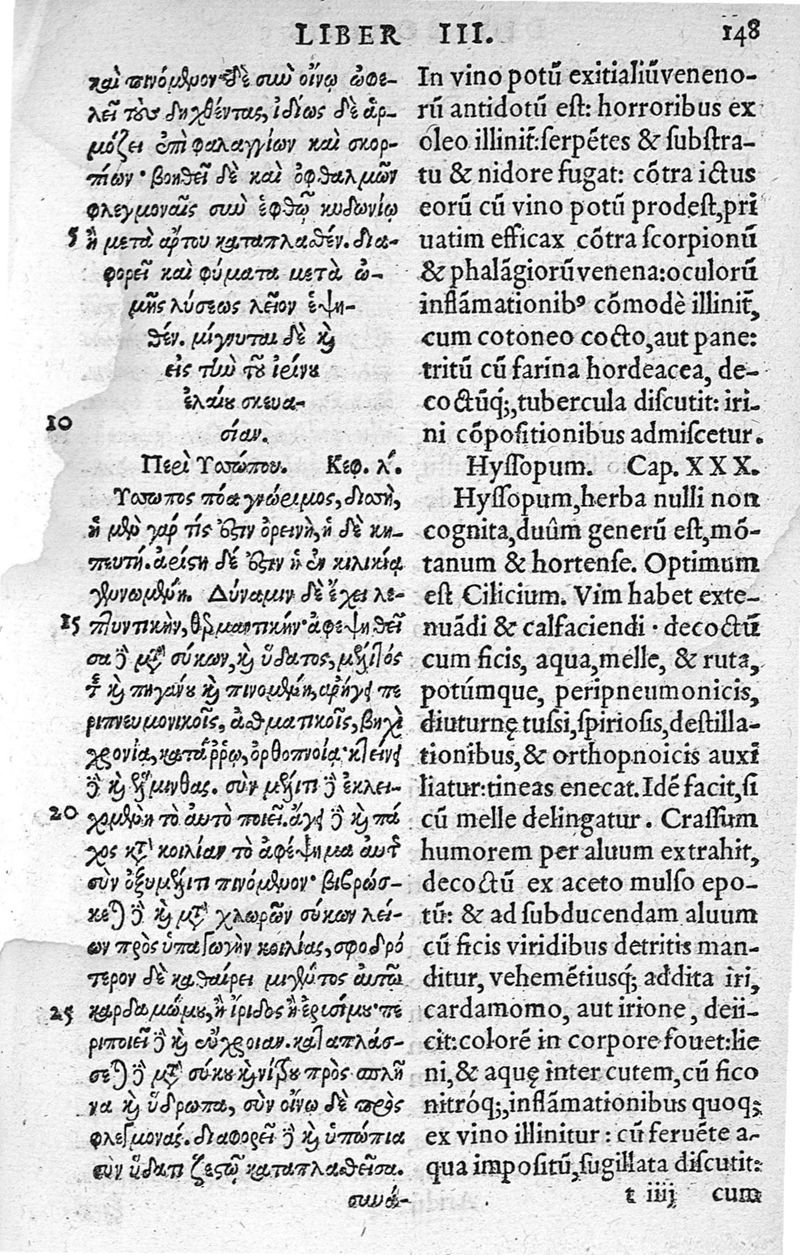 LIBER III. 148
καὶ πινόμενον δὲ σὺν οἴνῳ ὠφε-
λεῖ τοὺς δηχθέντας, ἰδίως δὲ ἁρ-
μόζει ἐπὶ φαλαγγίων καὶ σκορ-
πίων· βοηθεῖ δὲ καὶ ὀφθαλμῶν
φλεγμοναῖς σὺν ἑφθῷ κυδωνίῳ
5 ἢ μετὰ ἄρτου καταπλαθέν. δια-
φορεῖ καὶ φύματα μετὰ ὠ-
μῆς λύσεως λεῖον ἑψη-
θέν. μίγνυται δὲ καὶ
εἰς τὴν τοῦ ἰρίνου
ἐλαίου σκευα-
10 σίαν.
Περὶ Ὑσσώπου. Κεφ. λʹ.
Ὕσσωπος πόα γνώριμος, δισσὴ,
ἡ μὲν γάρ τίς ἐστιν ὀρεινὴ, ἡ δὲ κη-
πευτή. ἀρίστη δέ ἐστιν ἡ ἐν κιλικίᾳ
γενομένη. Δύναμιν δὲ ἔχει λε-
15 πτυντικὴν, θερμαντικήν· ἀφεψηθεῖ
σα δὲ μετὰ σύκων, καὶ ὕδατος, μέλιτός
τε καὶ πηγάνου καὶ πινομένη, ἀρήγει πε
ριπνευμονικοῖς, ἀσθματικοῖς, βηχὶ
χρονίᾳ, κατάρρῳ, ὀρθοπνοίᾳ· κτείνει
δὲ καὶ ἕλμινθας. σὺν μέλιτι δὲ ἐκλει-
20 χομένη τὸ αὐτὸ ποιεῖ. ἄγει δὲ καὶ πά
χος κατὰ κοιλίαν τὸ ἀφέψημα αὐτῆς
σὺν ὀξυμέλιτι πινόμενον· βιβρώσ-
κεται δὲ καὶ μετὰ χλωρῶν σύκων λεί-
ων πρὸς ὑπαγωγὴν κοιλίας, σφοδρό
τερον δὲ καθαίρει μιγέντος αὐτῷ
25 καρδαμώμου, ἢ ἴριδος ἢ ἐρισίμου· πε
ριποιεῖ δὲ καὶ εὔχροιαν. καταπλάσ-
σεται δὲ μετὰ σύκου καὶ νίτρου πρὸς σπλῆ
να καὶ ὕδρωπα, σὺν οἴνῳ δὲ πρὸς
φλεγμονάς. διαφορεῖ δὲ καὶ ὑπώπια
σὺν ὕδατι ζεστῷ καταπλασθεῖσα.
συνά-
In vino potũ exitialiũ veneno-
rũ antidotũ est: horroribus ex
oleo illinit̃: serpẽtes & substra-
tu & nidore fugat: cõtra ictus
eorũ cũ vino potũ prodest, pri
uatim efficax cõtra scorpionũ
& phalãgiorũ venena: oculorũ
inflãmationibꝰ cõmodè illinit̃,
cum cotoneo cocto, aut pane:
tritũ cũ farina hordeacea, de-
coctũq;, tubercula discutit: iri-
ni cõpositionibus admiscetur.
Hyssopum. Cap. XXX.
Hyssopum, herba nulli non
cognita, duûm generũ est, mõ-
tanum & hortense. Optimum
est Cilicium. Vim habet exte-
nuãdi & calfaciendi · decoctũ
cum ficis, aqua, melle, & ruta,
potúmque, peripneumonicis,
diuturnę tussi, spiriosis, destilla-
tionibus, & orthopnoicis auxi
liatur: tineas enecat. Idẽ facit, si
cũ melle delingatur. Crassum
humorem per aluum extrahit,
decoctũ ex aceto mulso epo-
tũ: & ad subducendam aluum
cũ ficis viridibus detritis man-
ditur, vehemẽtiusq; addita iri,
cardamomo, aut irione, deii-
cit: colorẽ in corpore fouet: lie
ni, & aquę inter cutem, cũ fico
nitróq;, inflãmationibus quoq;
ex vino illinitur: cũ feruẽte a-
qua impositũ, sugillata discutit:
t iiij cum